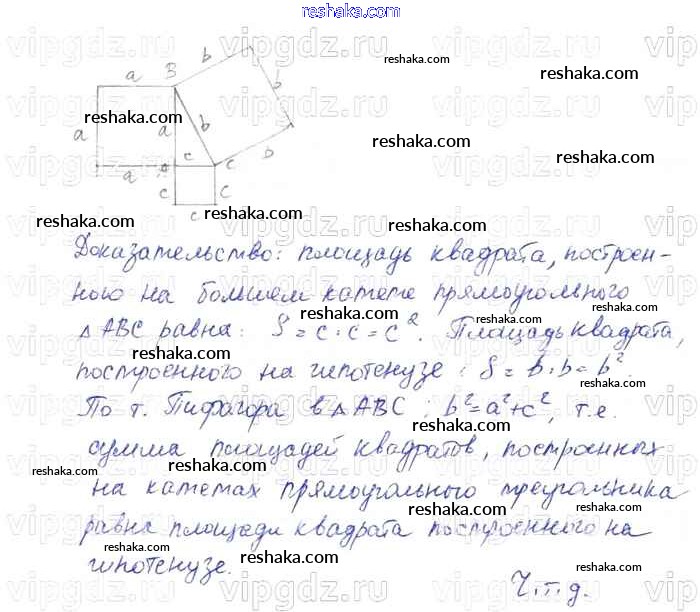 reshaka.com
vipgdz.ru vipgdz.ru vipgdz.ru
b
reshaka.com
a B b
reshaka.com
a a b
reshaka.com
c c b
a c
c c
c
reshaka.com
reshaka.com
Доказательство: площадь квадрата, построен-
ного на большем катете прямоугольного
△ABC равна: S = c · c = c². Площадь квадрата,
построенного на гипотенузе: S = b · b = b².
По т. Пифагора в △ABC: b² = a² + c², т.е.
сумма площадей квадратов, построенных
на катетах прямоугольного треугольника
равна площади квадрата построенного на
гипотенузе.
Ч.т.д.
reshaka.com
reshaka.com
reshaka.com
reshaka.com
reshaka.com
reshaka.com
reshaka.com
reshaka.com